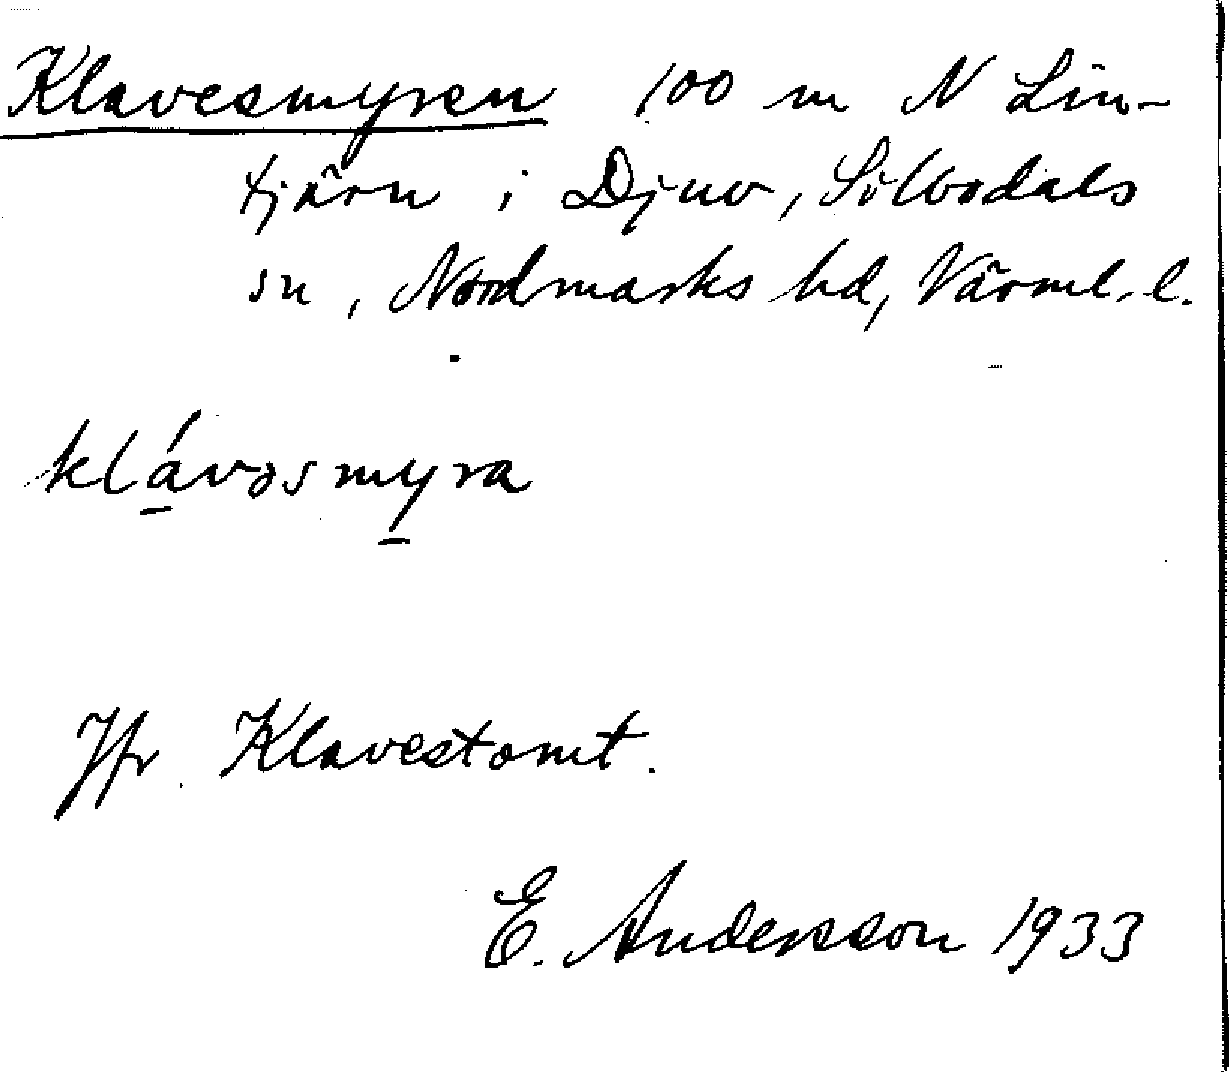 Klavesmyren 100 m N Lin-
tjärn i Djuv, Silbodals
sn, Nordmarks hd, Värml. l.
klávəsmyra
Jfr Klavestomt.
E. Andersson 1933